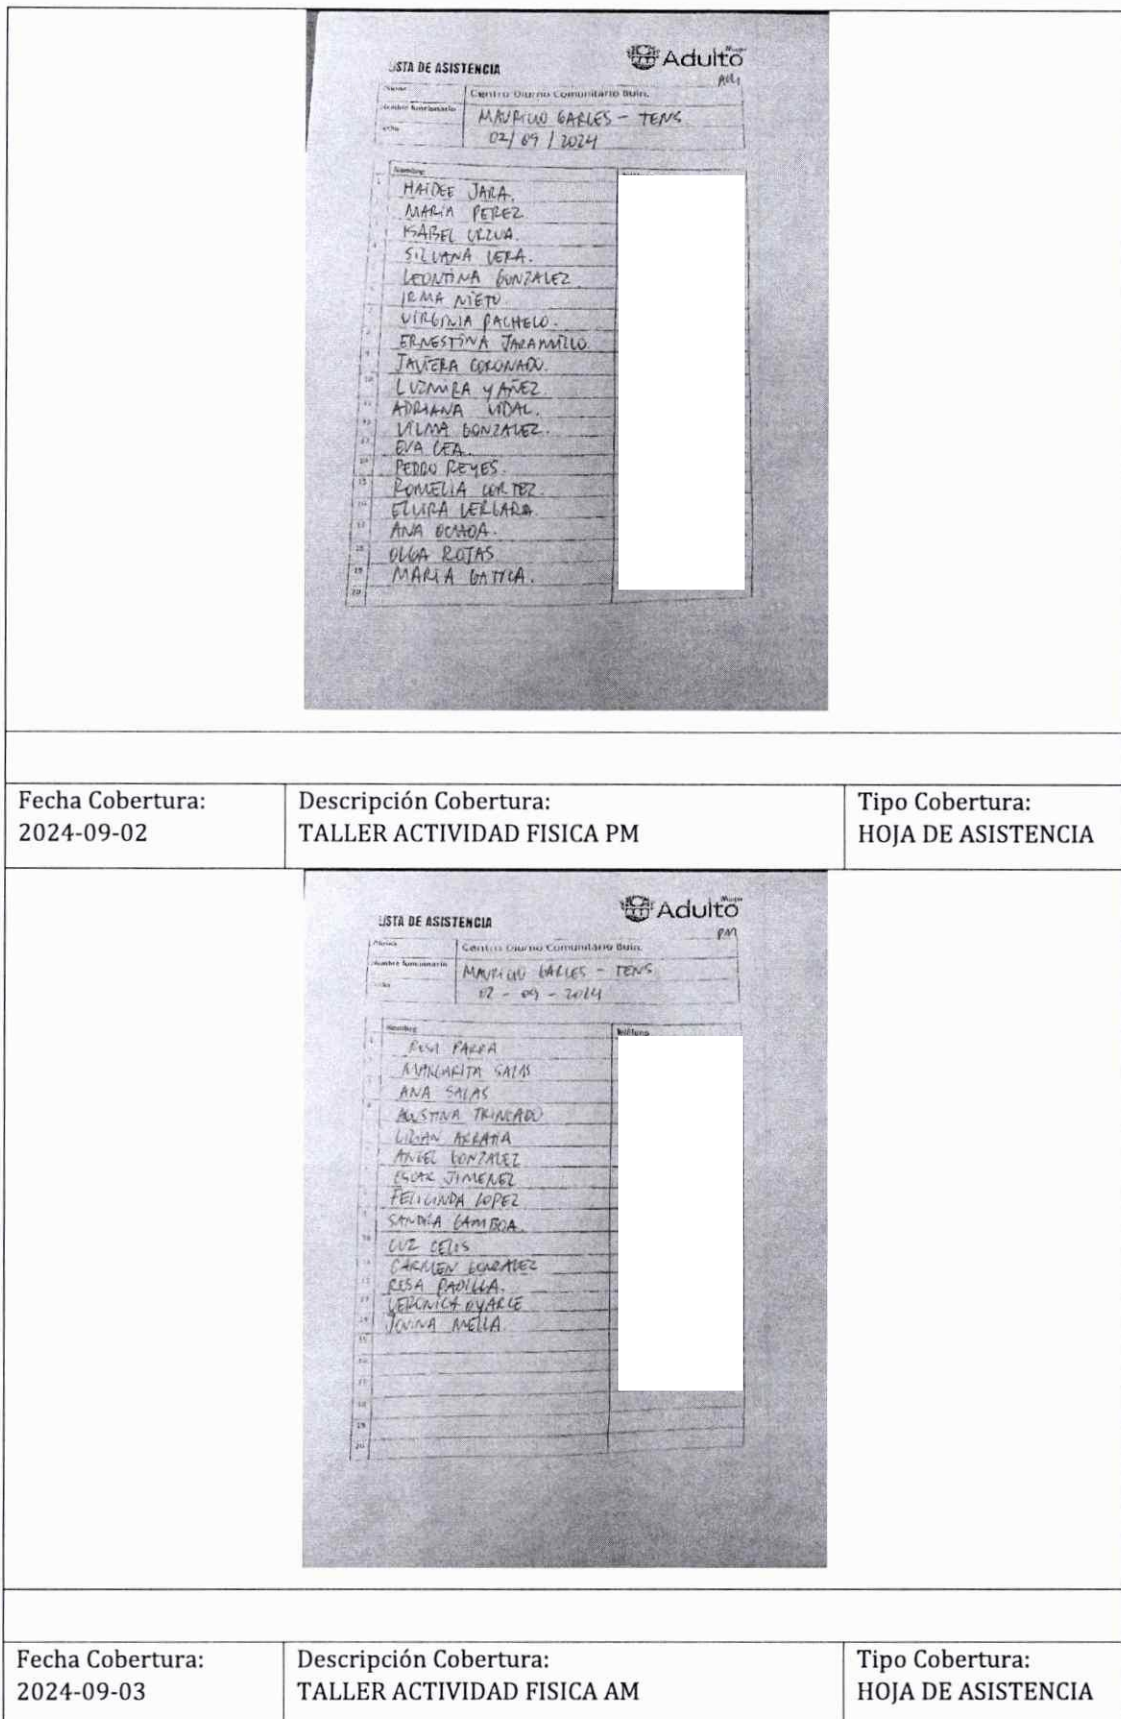 LISTA DE ASISTENCIA
Adulto
AM
Centro Diurno Comunitario Buin.
Nombre funcionario
MAURICIO GARCES - TENS
Fecha
02/09/2024
Nombre
HAIDEE JARA.
MARIA PEREZ
ISABEL URZUA.
SILVANA VERA.
LEONTINA GONZALEZ
IRMA NIETO
VIRGINIA PACHECO.
ERNESTINA JARAMILLO
JAVIERA CORONADO.
LUZMIRA YAÑEZ
ADRIANA VIDAL.
VILMA GONZALEZ.
EVA CEA.
PEDRO REYES.
ROMELIA CORTEZ.
ELVIRA VERGARA.
ANA OCHOA.
OLGA ROJAS
MARIA GATICA.
20
Fecha Cobertura:
2024-09-02
Descripción Cobertura:
TALLER ACTIVIDAD FISICA PM
Tipo Cobertura:
HOJA DE ASISTENCIA
LISTA DE ASISTENCIA
Adulto
PM
Centro Diurno Comunitario Buin.
Nombre funcionario
MAURICIO GARCES - TENS
02 - 09 - 2024
Nombre
Teléfono
ROSA PARRA
MARGARITA SALAS
ANA SALAS
AGUSTINA TRINCADO
LILIAN ARRATIA
ANGEL GONZALEZ
JIMENEZ
FELICINDA LOPEZ
SANDRA GAMBOA.
LUZ CELIS
CARMEN GONZALEZ
ROSA PADILLA.
VERONICA OYARCE
JOVINA MELLA.
Fecha Cobertura:
2024-09-03
Descripción Cobertura:
TALLER ACTIVIDAD FISICA AM
Tipo Cobertura:
HOJA DE ASISTENCIA